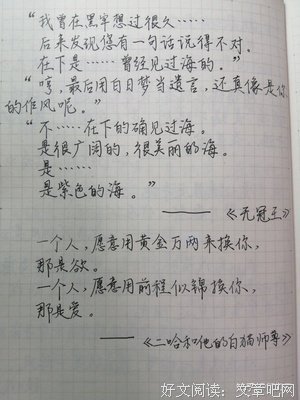 “我曾在黑牢想过很久……
后来发现您有一句话说得不对.
在下是……曾经见过海的。”
“哼,最后用白日梦当遗言,还真像是你
的作风呢。”
“不……在下的确见过海。
是很广阔的,很美丽的海。
是……
是紫色的海。”
——《无冠王》
一个人,愿意用黄金万两来换你,
那是欲。
一个人,愿意用前程似锦换你,
那是爱。
——《二哈和他的白猫师尊》
好文阅读:文章吧网